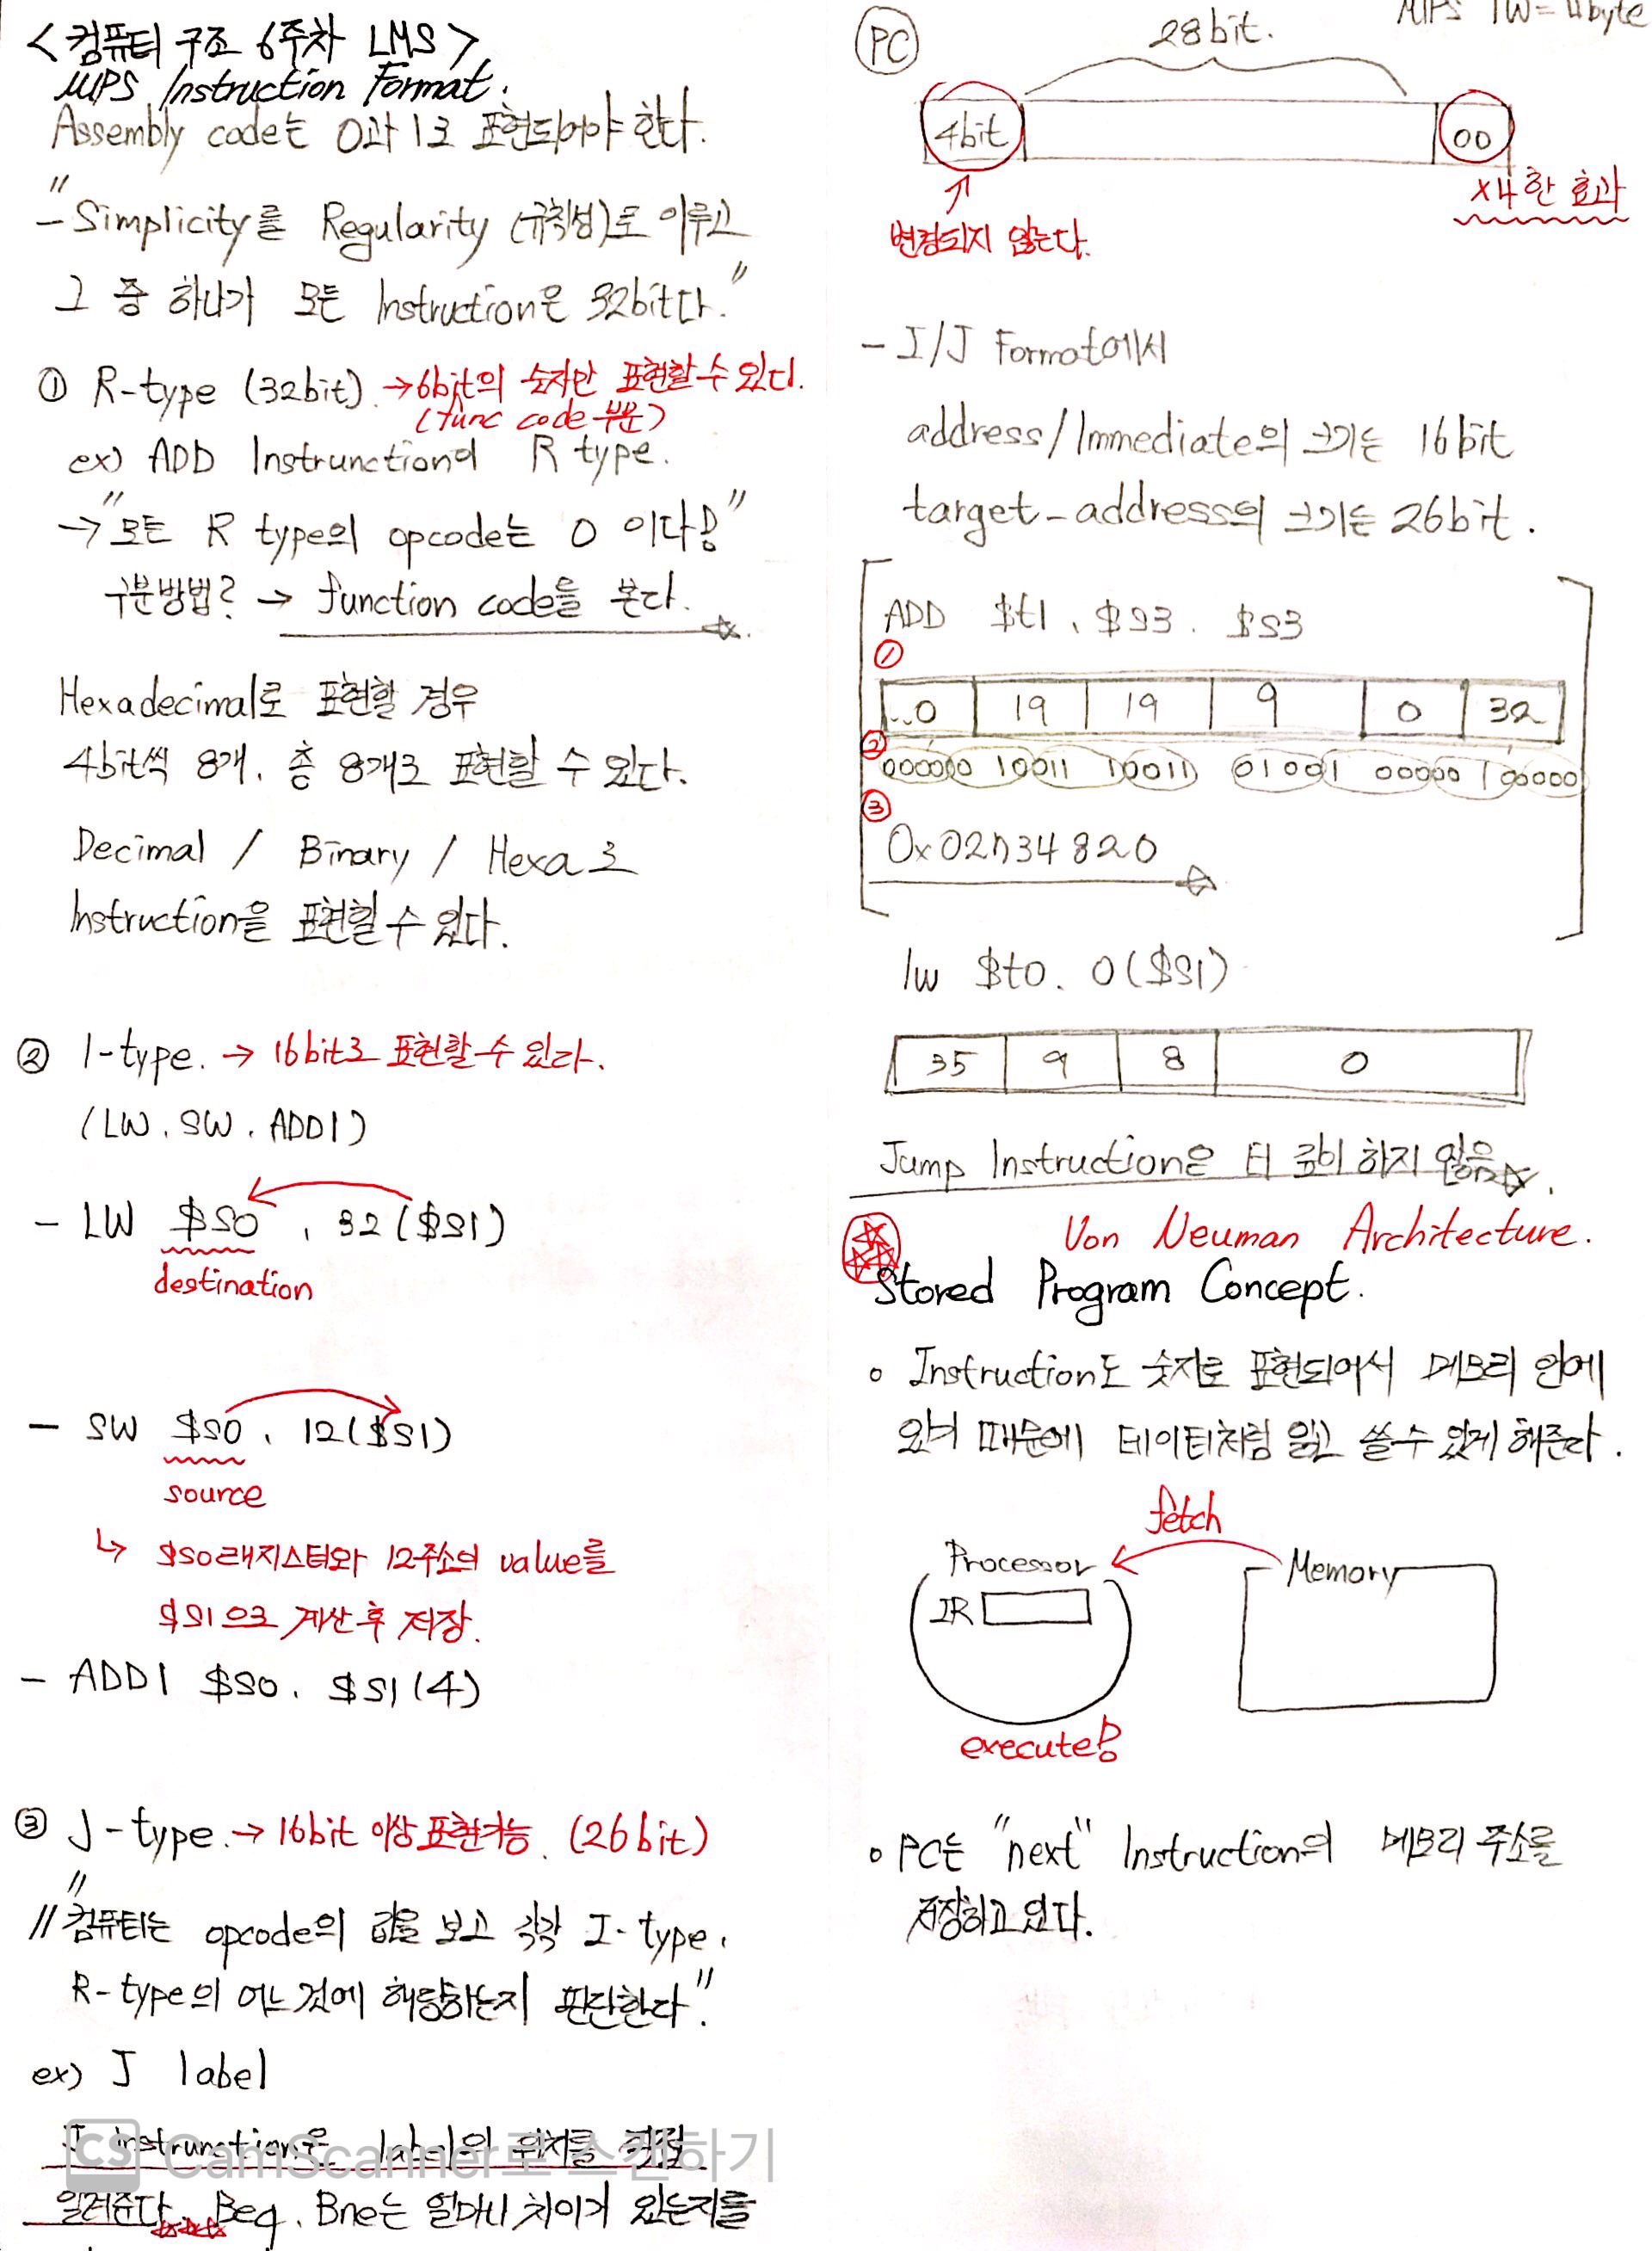 <컴퓨터 구조 6주차 LMS>
MIPS Instruction Format.
Assembly code는 0과 1로 표현되어야 한다.
"
- Simplicity를 Regularity (규칙성)로 이루고
그 중 하나가 모든 Instruction은 32bit다."
① R-type (32bit). → 6bit의 숫자만 표현할 수 있다.
(func code 부분)
ex) ADD Instrunction이 R type.
→ "모든 R type의 opcode는 0 이다!"
구분방법? → function code를 본다.
Hexadecimal로 표현할 경우
4bit씩 8개. 총 8개로 표현할 수 있다.
Decimal / Binary / Hexa로
Instruction을 표현할 수 있다.
② I-type. → 16bit로 표현할 수 있다.
(LW. SW. ADDI)
- LW $S0 , 32($S1)
destination
- SW $S0 , 12($S1)
source
↳ $S0레지스터와 12주소의 value를
$S1으로 계산 후 저장.
- ADDI $S0. $S1(4)
③ J-type. → 16bit 이상 표현가능. (26bit)
"
// 컴퓨터는 opcode의 값을 보고 각각 I-type,
R-type의 어느 것에 해당하는지 판단한다".
ex) J label
J instrunction은 label의 위치를 직접
알려준다. Beq, Bne는 얼마나 차이가 있는지를
CS CamScanner로 스캔하기
MIPS 1W = 4byte
PC
28bit.
4bit 00
변경되지 않는다.
x4한 효과
- I/J Format에서
address/Immediate의 크기는 16bit
target-address의 크기는 26bit.
ADD $t1, $S3. $S3
①
..0 19 19 9 0 32
②
000000 10011 10011 01001 00000 100000
③
0x02734820
lw $t0. 0($S1)
35 9 8 0
Jump Instruction은 더 깊이 하지 않음.
Von Neuman Architecture.
Stored Program Concept.
• Instruction도 숫자로 표현되어서 메모리 안에
있기 때문에 데이터처럼 읽고 쓸 수 있게 해준다.
fetch
Processor Memory
IR
execute!
• PC는 "next" Instruction의 메모리 주소를
저장하고 있다.